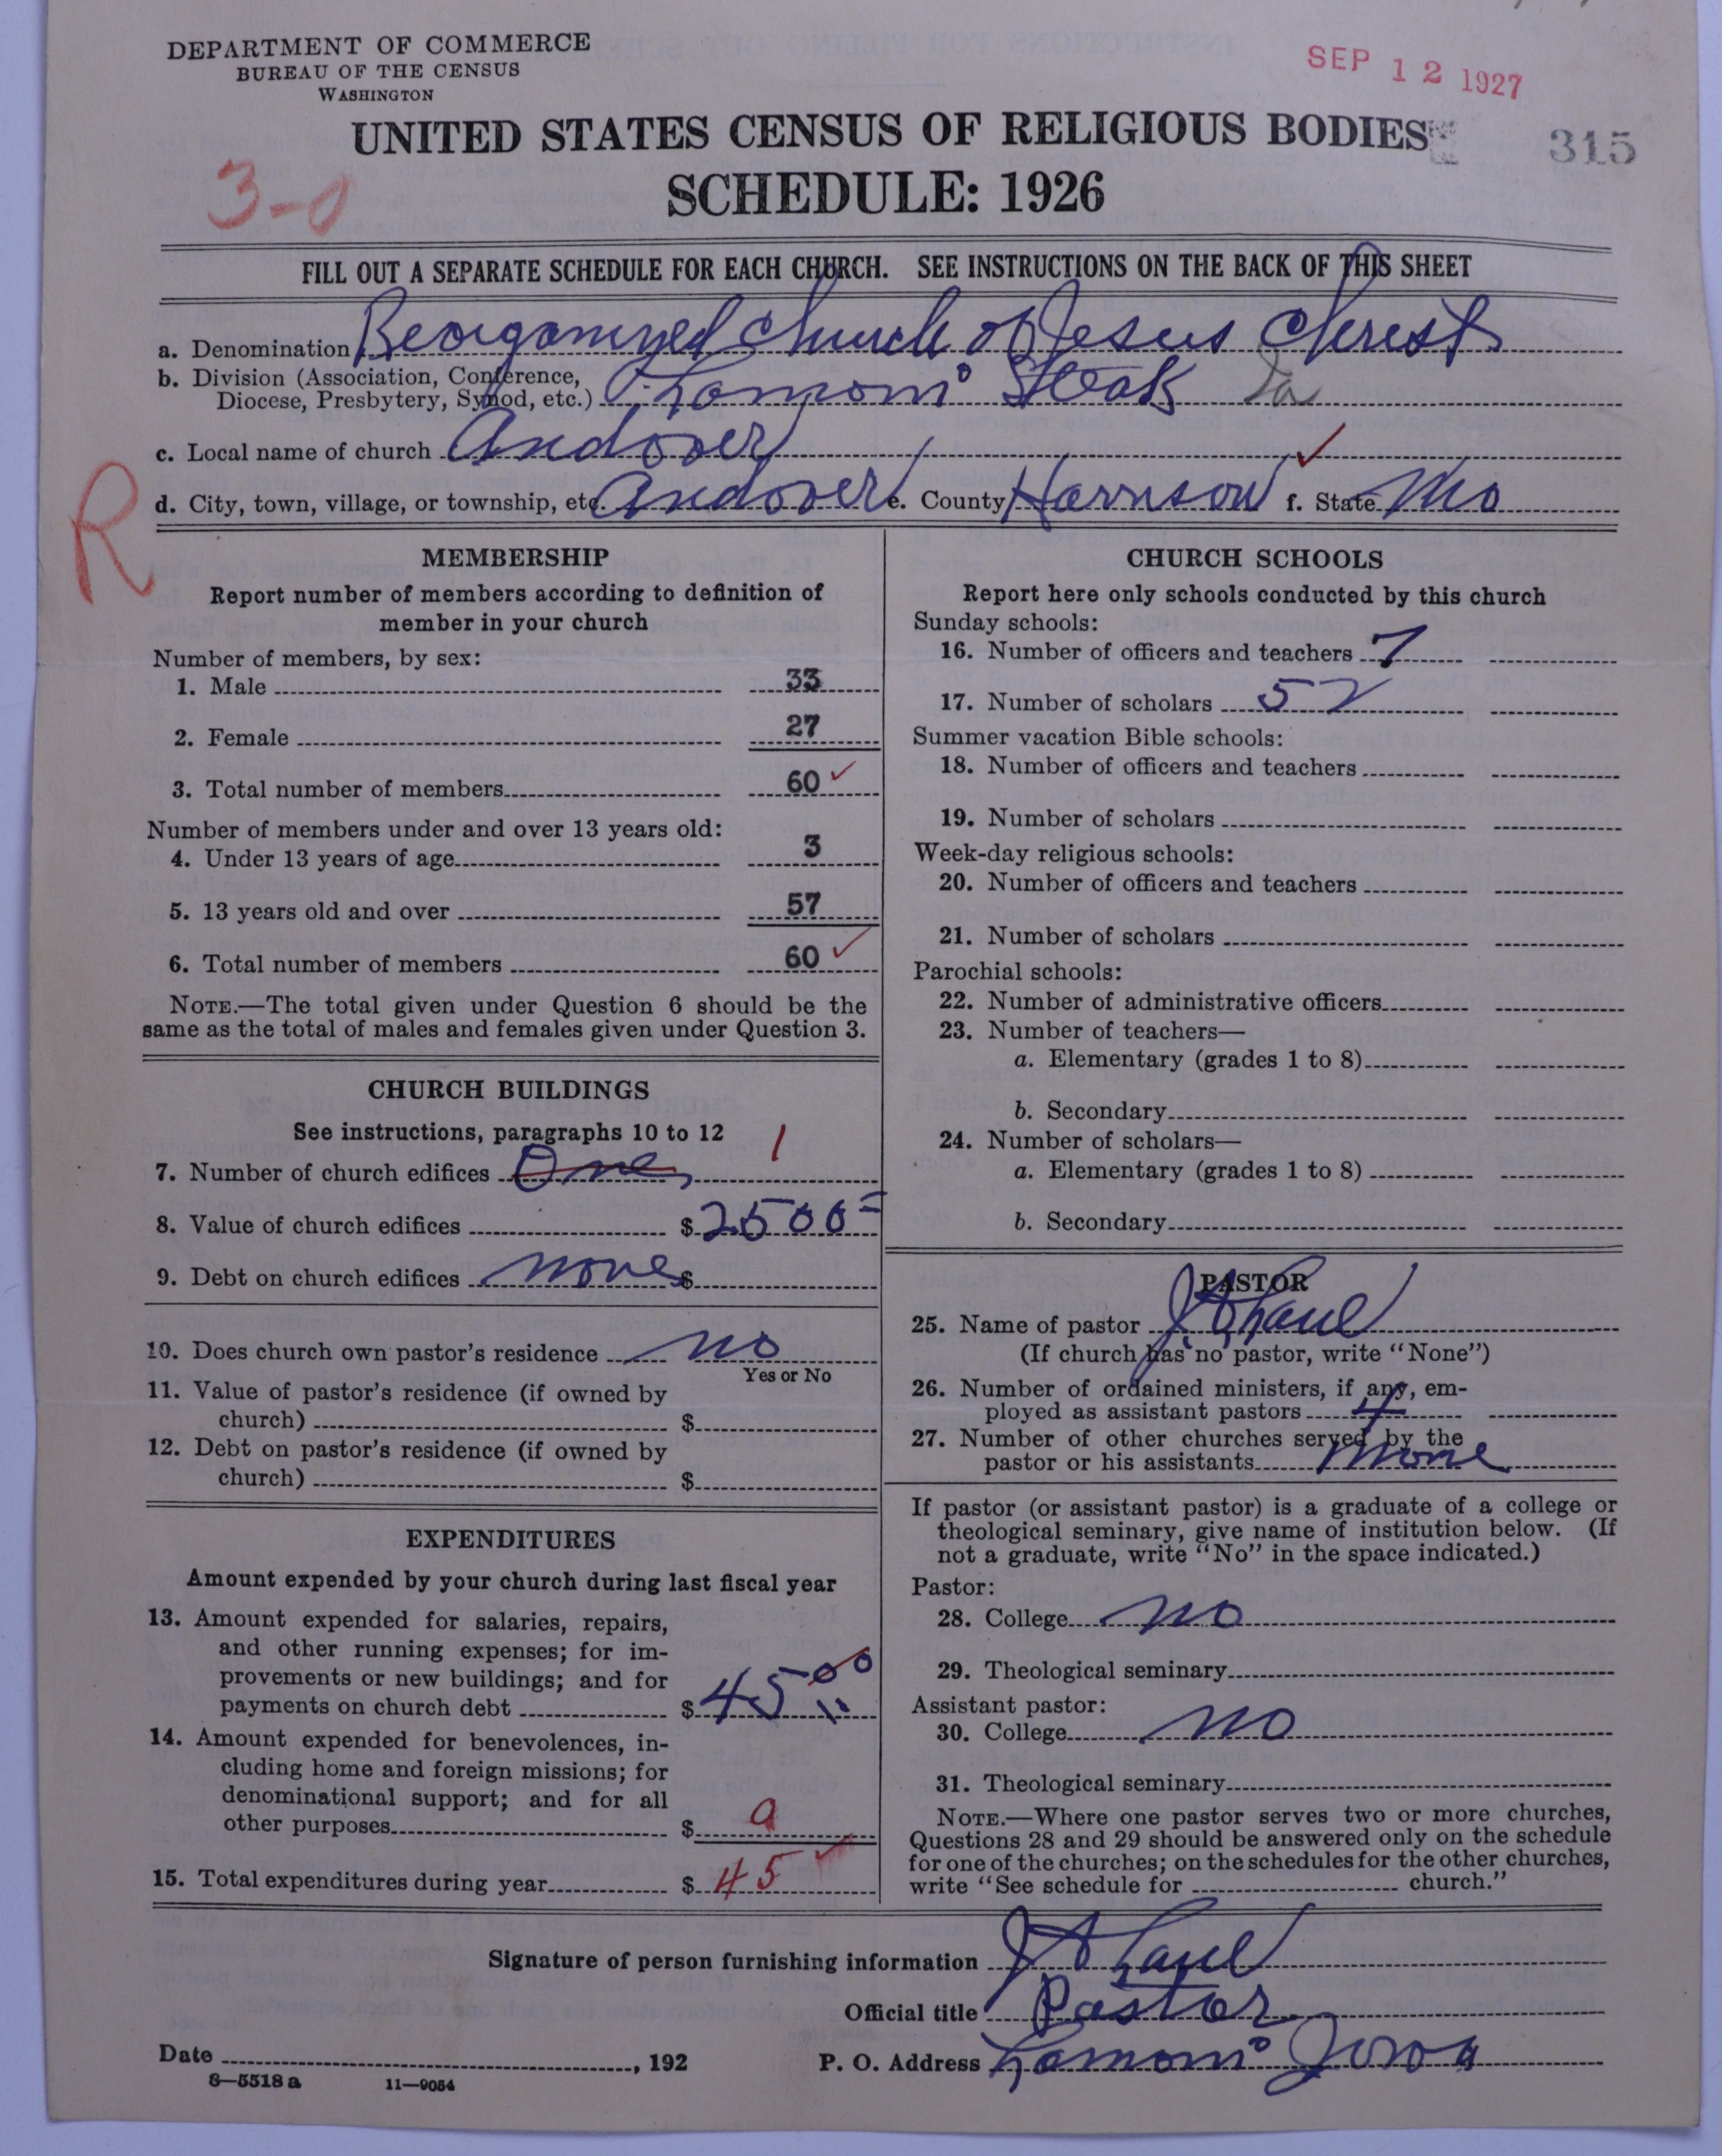 DEPARTMENT OF COMMERCE
BUREAU OF THE CENSUS
WASHINGTON
SEP 12 1927
UNITED STATES CENSUS OF RELIGIOUS BODIES
315
SCHEDULE: 1926
3-0
FILL OUT A SEPARATE SCHEDULE FOR EACH CHURCH. SEE INSTRUCTIONS ON THE BACK OF THIS SHEET
a. Denomination Reorganized Church of Jesus Christ
b. Division (Association, Conference,
Diocese, Presbytery, Synod, etc.) Lamoni Steak Ia
c. Local name of church Andover
d. City, town, village, or township, etc. Andover e. County Harrison f. State Mo
R
MEMBERSHIP
Report number of members according to definition of
member in your church
Number of members, by sex:
1. Male 33
2. Female 27
3. Total number of members 60
Number of members under and over 13 years old:
4. Under 13 years of age 3
5. 13 years old and over 57
6. Total number of members 60
NOTE.—The total given under Question 6 should be the
same as the total of males and females given under Question 3.
CHURCH BUILDINGS
See instructions, paragraphs 10 to 12
7. Number of church edifices One 1
8. Value of church edifices $ 2500=
9. Debt on church edifices none $
10. Does church own pastor's residence no
Yes or No
11. Value of pastor's residence (if owned by
church) $
12. Debt on pastor's residence (if owned by
church) $
EXPENDITURES
Amount expended by your church during last fiscal year
13. Amount expended for salaries, repairs,
and other running expenses; for im-
provements or new buildings; and for
payments on church debt $ 45 00
14. Amount expended for benevolences, in-
cluding home and foreign missions; for
denominational support; and for all
other purposes $ a
15. Total expenditures during year $ 45
CHURCH SCHOOLS
Report here only schools conducted by this church
Sunday schools:
16. Number of officers and teachers 7
17. Number of scholars 52
Summer vacation Bible schools:
18. Number of officers and teachers
19. Number of scholars
Week-day religious schools:
20. Number of officers and teachers
21. Number of scholars
Parochial schools:
22. Number of administrative officers
23. Number of teachers—
a. Elementary (grades 1 to 8)
b. Secondary
24. Number of scholars—
a. Elementary (grades 1 to 8)
b. Secondary
PASTOR
25. Name of pastor J. A.
(If church has no pastor, write "None")
26. Number of ordained ministers, if any, em-
ployed as assistant pastors 4
27. Number of other churches served by the
pastor or his assistants None
If pastor (or assistant pastor) is a graduate of a college or
theological seminary, give name of institution below. (If
not a graduate, write "No" in the space indicated.)
Pastor:
28. College no
29. Theological seminary
Assistant pastor:
30. College no
31. Theological seminary
NOTE.—Where one pastor serves two or more churches,
Questions 28 and 29 should be answered only on the schedule
for one of the churches; on the schedules for the other churches,
write "See schedule for church."
Signature of person furnishing information J A
Official title Pastor
Date , 192 P. O. Address Lamoni Iowa
8—5518 a 11—9054